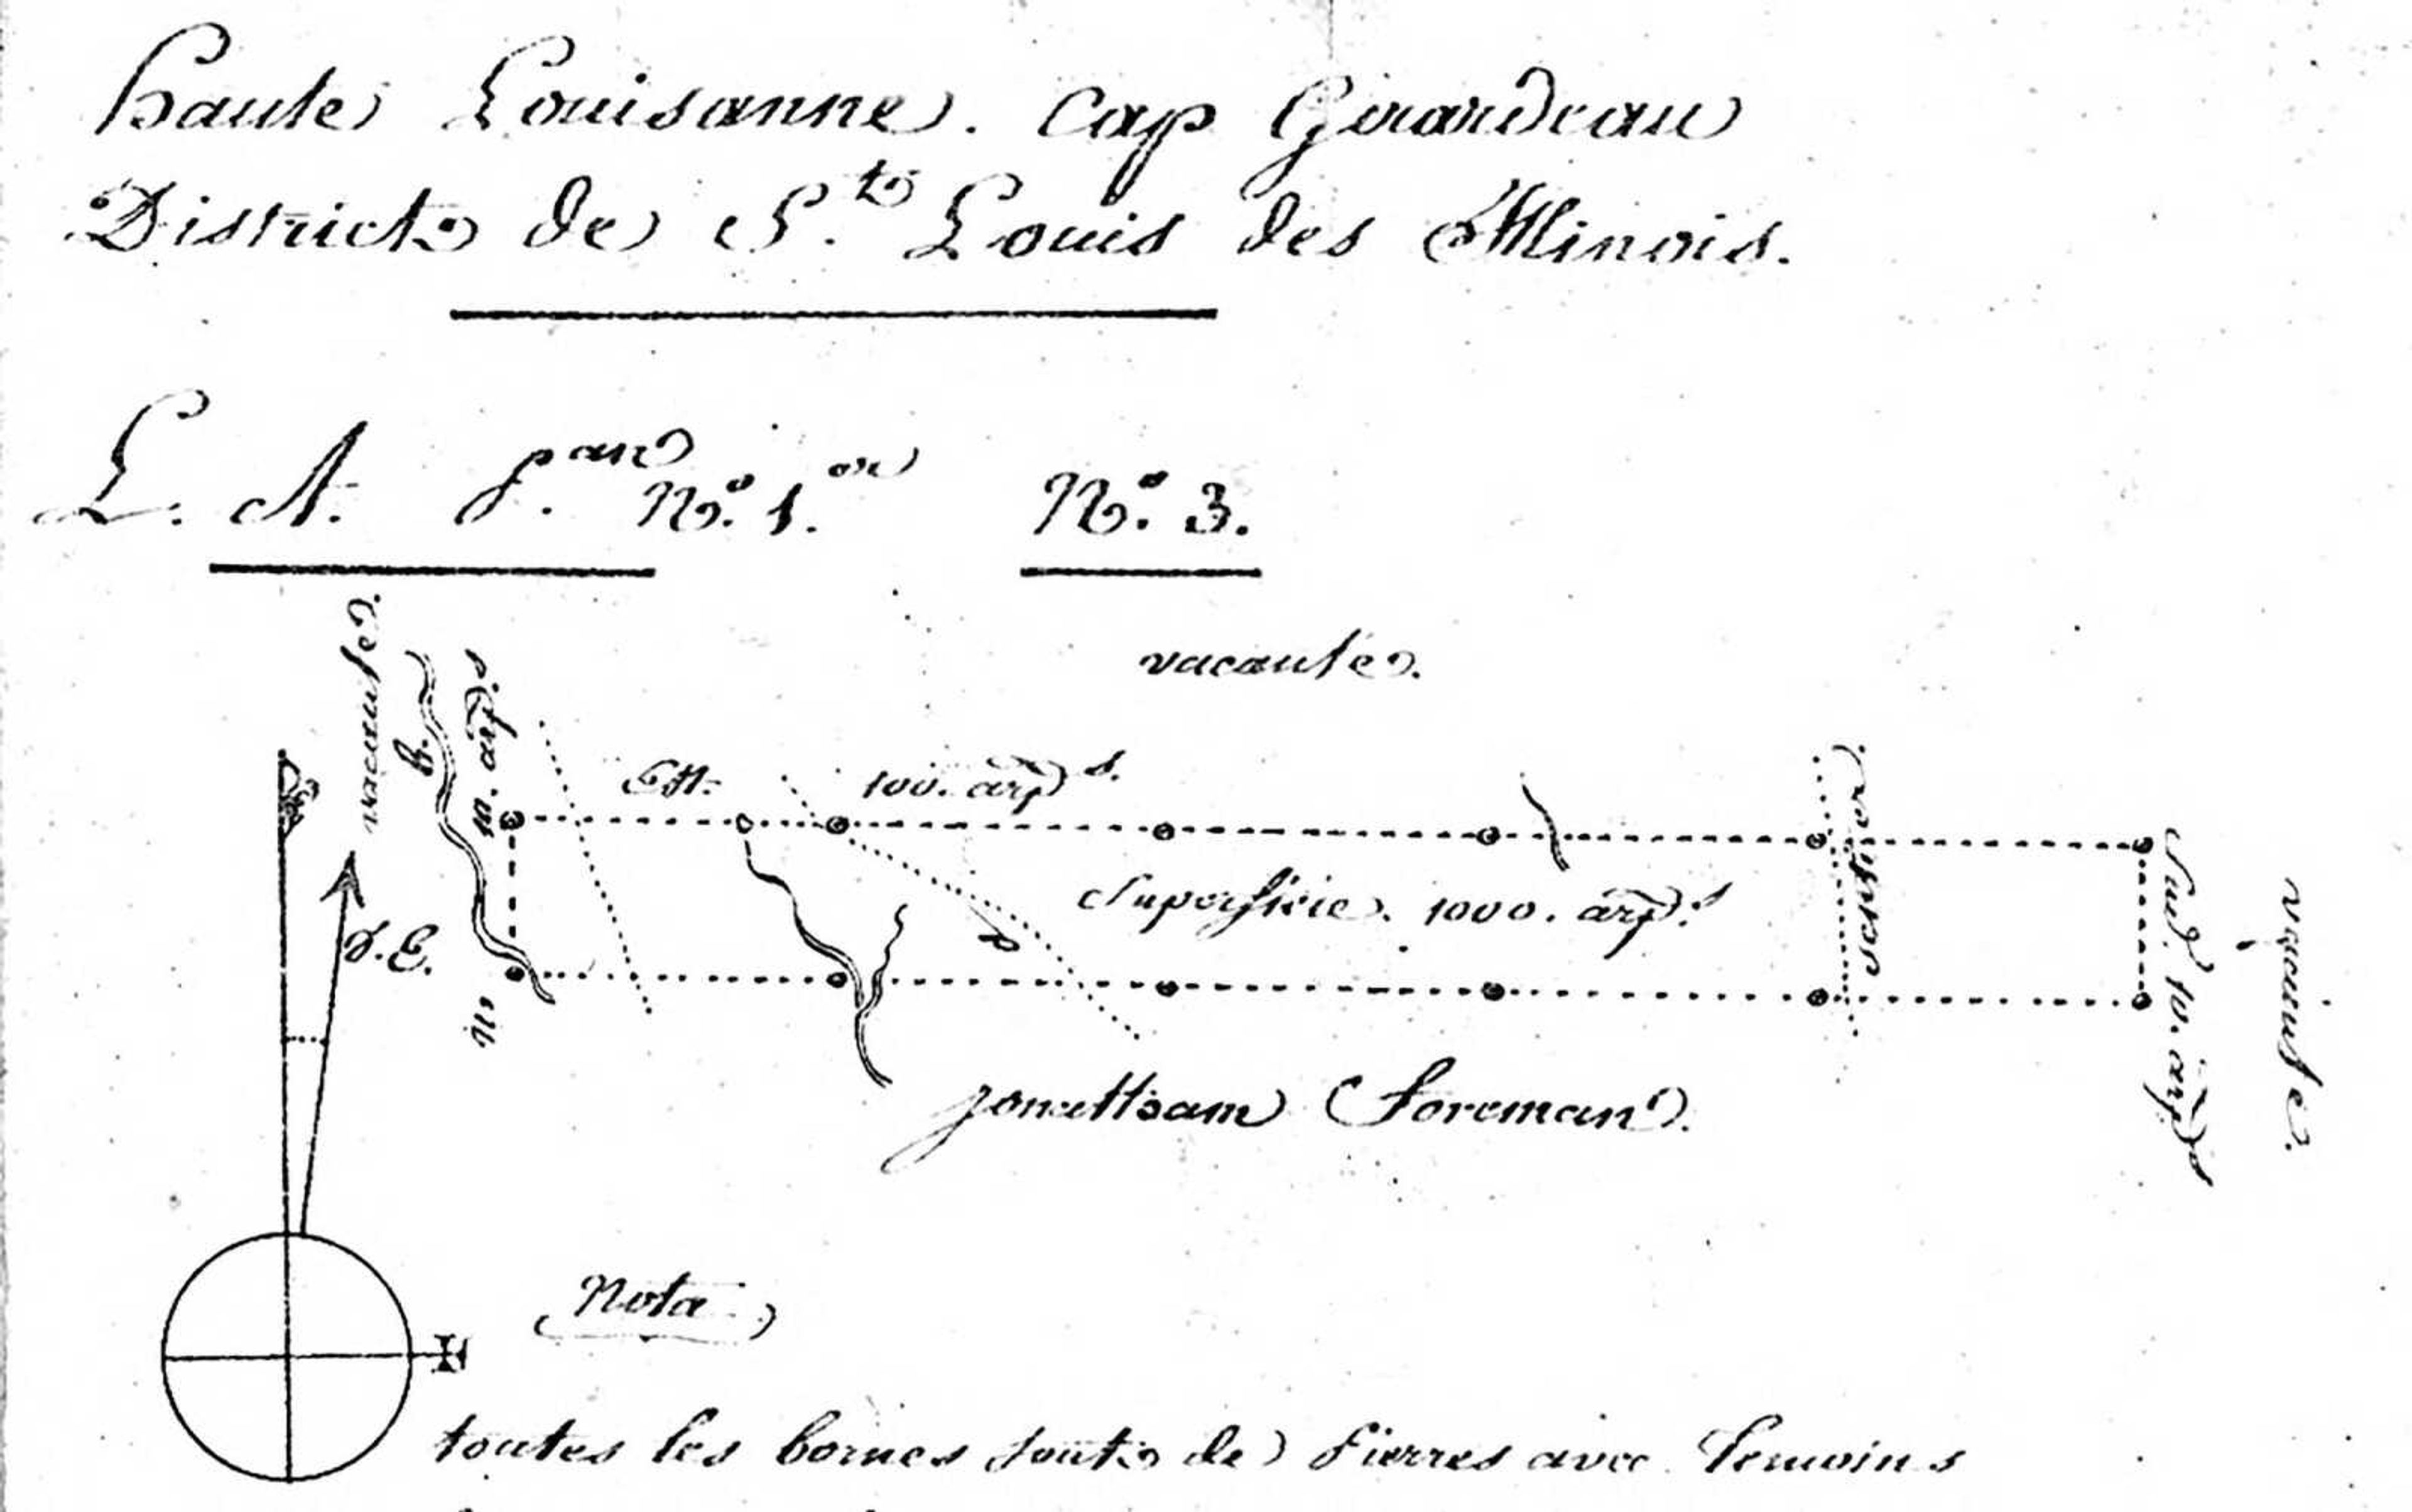 Haute Louisanne. Cap Girardeau
District de S.t Louis des Illinois.
L. A. P.an N.o 1.er N.o 3.
vacante.
vacante
Est. 100. arp.s
Superficie. 1000. arp.s
Sud. 10. arp.s
vacante.
D.E.
Foreman.
E
Nota
toutes les bornes sont de Pierres avec Temoins